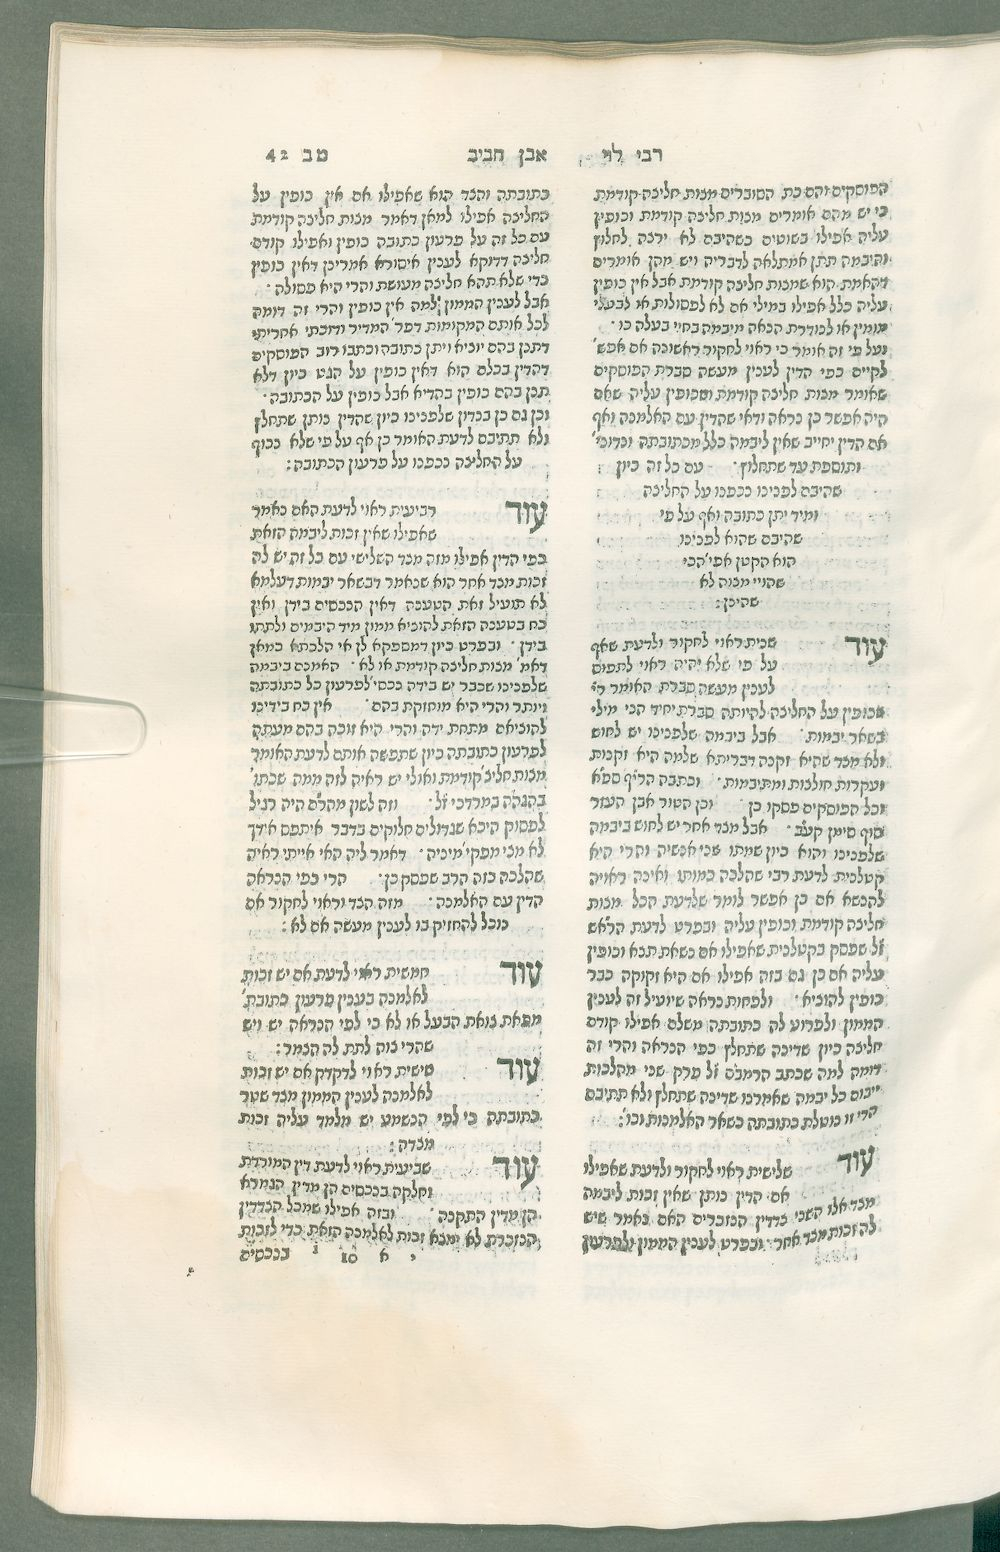 רבי לוי אבן חביב מב 42
הפוסקים והם כת הסוברים מצות חליצה קודמת
כי יש מהם אומרים מצות חליצה קודמת וכופין
עליה אפילו בשוטים כשהיבם לא ירצה לחלוץ
והיבמה תתן אמתלאה לדבריה ויש מהן אומרים
דהאמת הוא שמצות חליצה קודמת אבל אין כופין
עליה כלל אפילו במילי אם לא לפסולות או לבעלי
מומין או לנודרת הנאה מיבמה בחיי בעלה כו׳
ועל פי זה אומר כי ראוי לחקור ראשונה אם אפש׳
לקיים כפי הדין לענין מעשה סברת הפוסקים
שאומר מצות חליצה קודמת ושכופין עליה שאם
היה אפשר כן נראה ודאי שהדין עם האלמנה ואף
אם הדין יחייב שאין ליבמה כלל מכתובתה ונדוני׳
ותוספת עד שתחלוץ׳ עם כל זה כיון
שהיבם לפנינו נכפנו על החליצה
ומיד יתן כתובה ואף על פי
שהיבם שהוא לפנינו
הוא הקטן אפי׳ הכי
שהויי מצוה לא
שהינן:
עוד שנית ראוי לחקור ולדעת שאף
על פי שלא יהיה ראוי לתפוס
לענין מעשה סברת האומר די
שכופין על החליצה להיותה סברת יחיד הני מילי
בשאר יבמות׳ אבל ביבמה שלפנינו יש לחוש
ולא מצד שהיא זקנה דברייתא שלמה היא זקנות
ועקרות חולצות ומתיבמות׳ וכתבה הרי״ף ספ״א
וכל הפוסקים פסקו כן׳ וכן הטור אבן העזר
סוף סימן קע״ב׳ אבל מצד אחר יש לחוש ביבמה
שלפנינו והוא כיון שמתו שני אנשיה והרי היא
קטלנית לדעת רבי שהלכה כמותו ואינה ראויה
להנשא אם כן אפשר לומר שלדעת הכל מצות
חליצה קודמת וכופין עליה ובפרט לדעת הרא״ש
ז״ל שפסק בקטלנית שאפילו אם נשאת תצא וכופין
עליה אם כן גם בזה אפילו אם היא זקוקה כבר
כופין להוציא׳ ולפחות נראה שיועיל זה לענין
הממון ולפרוע לה כתובתה משלם אפילו קודם
חליצה כיון שדינה שתחלץ כפי הנראה והרי זה
דומה למה שכתב הרמב״ם ז״ל פרק שני מהלכות
ייבום כל יבמה שאמרנו שדינה שתחלץ ולא תתיבם
הרי זו נוטלת כתובתה כשאר האלמנות וכו׳:
עוד שלישית ראוי לחקור ולדעת שאפילו
אם הדין נותן שאין זכות ליבמה
מצד אלו השני צדדין הנזכרים האם נאמר שיש
לה זכות מצד אחר׳ ובפרט לענין הממון ולפרעון
כתובתה והצד הוא שאפילו אם אין כופין על
החליצה אפילו למאן דאמר מצות חליצה קודמת
עם כל זה על פרעון כתובה כופין ואפילו קודם
חליצה דדוקא לענין איסורא אמרינן דאין כופין
כדי שלא תהא חליצה מעושת והרי היא פסולה׳
אבל לענין הממון למה אין כופין והרי זה דומה
לכל אותם המקומות דפר המדיר ודוכתי אחריתי
דתנן בהם יוציא ויתן כתובה וכתבו רוב הפוסקים
דהדין בכלם הוא דאין כופין על הגט כיון דלא
תנן בהם כופין בהדיא אבל כופין על הכתובה׳
וכן גם כן בנדון שלפנינו כיון שהדין נותן שתחלץ
ולא תתיבם לדעת האומר כן אף על פי שלא נכוף
על החליצה נכפנו על פרעון הכתובה:
עוד רביעית ראוי לדעת האם נאמר
שאפילו שאין זכות ליבמה הזאת
כפי הדין אפילו מזה מצד השלישי עם כל זה יש לה
זכות מצד אחר הוא שנאמר דבשאר יבמות דעלמא
לא תועיל זאת הטענה דאין הנכסים בידן ואין
כח בטענה הזאת להוציא ממון מיד היבמים ולתתו
בידן׳ ובפרט כיון דמספקא לן אי הלכתא כמאן
דאמ׳ מצות חליצה קודמת או לא׳ האמנם ביבמה
שלפנינו שכבר יש בידה נכסי׳ לפרעון כל כתובתה
ויותר והרי היא מוחזקת בהם׳ אין כח בידינו
להוציאם מתחת ידה והרי היא זוכה בהם מעתה
לפרעון כתובתה כיון שתפשה אותם לדעת האומר
מצות חליצ׳ קודמת ואולי יש ראיה לזה ממה שכתו׳
בהגהה במרדכי ז״ל׳ וזה לשון מהר״ם היה רגיל
לפסוק היכא שגדולים חלוקים בדבר אי תפס אידך
לא מצי מפקי׳ מיניה׳ דאמר ליה האי אייתי ראיה
שהלכה כזה הרב שפסק כן׳ הרי כפי הנראה
הדין עם האלמנה׳ מזה הצד וראוי לחקור אם
נוכל להחזיק בו לענין מעשה אם לא:
עוד חמשית ראוי לדעת אם יש זכות
לאלמנה בענין פרעון כתובת׳
מפאת צואת הבעל או לא כי לפי הנראה יש ויש
שהרי צוה לתת לה הנמר:
עוד שישית ראוי לדקדק אם יש זכות
לאלמנה לענין הממון מצד שטר
כתובתה כי לפי הנשמע יש מלמד עליה זכות
מצדה:
עוד שביעית ראוי לדעת דין המורדת
וחלקה בנכסים הן מדין הגמרא
הן מדין התקנה׳ ובזה אפילו שמכל הצדדין
הנזכרת לא ימצא זכות לאלמנה הזאת כדי לזכות
י א 10 1 בנכסים